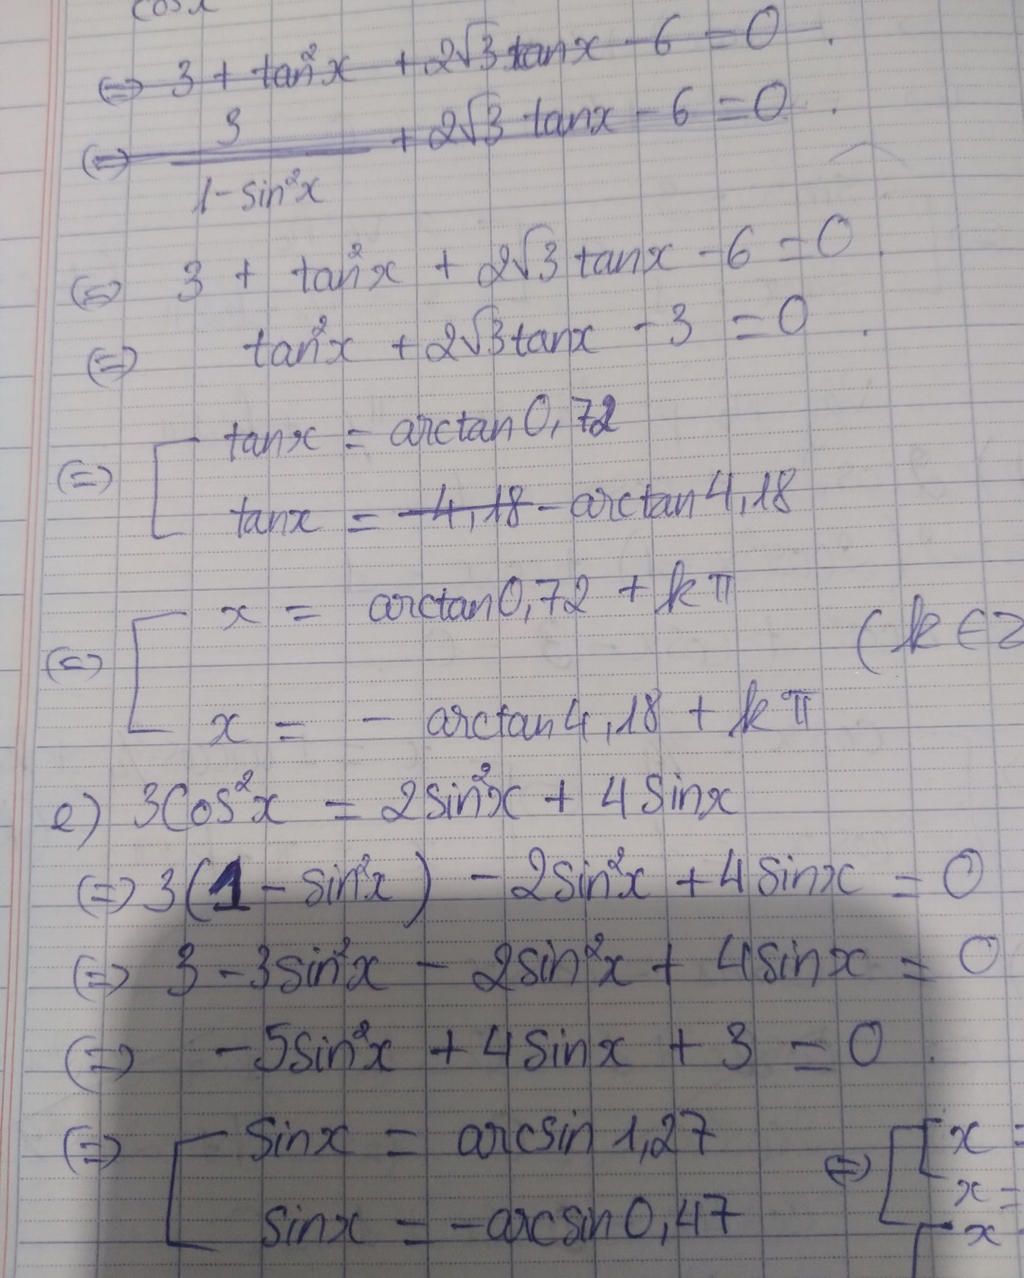 cosx
⇔ 3 + tan²x + 2√3 tanx - 6 = 0.
⇔ 3/(1-sin²x) + 2√3 tanx - 6 = 0.
⇔ 3 + tan²x + 2√3 tanx - 6 = 0.
⇔ tan²x + 2√3 tanx - 3 = 0.
⇔ [ tanx = arctan 0,72
tanx = -4,18 - arctan 4,18
⇔ [ x = arctan 0,72 + kπ
(k ∈ Z
x = - arctan 4,18 + kπ
e) 3Cos²x = 2sin²x + 4Sinx
⇔ 3(1 - sin²x) - 2sin²x + 4Sinx = 0
⇔ 3 - 3sin²x - 2sin²x + 4sinx = 0
⇔ -5sin²x + 4Sinx + 3 = 0.
⇔ [ Sinx = arcsin 1,27 ⇔ [ [ x =
x =
sinx = -arcsin 0,47 [ x